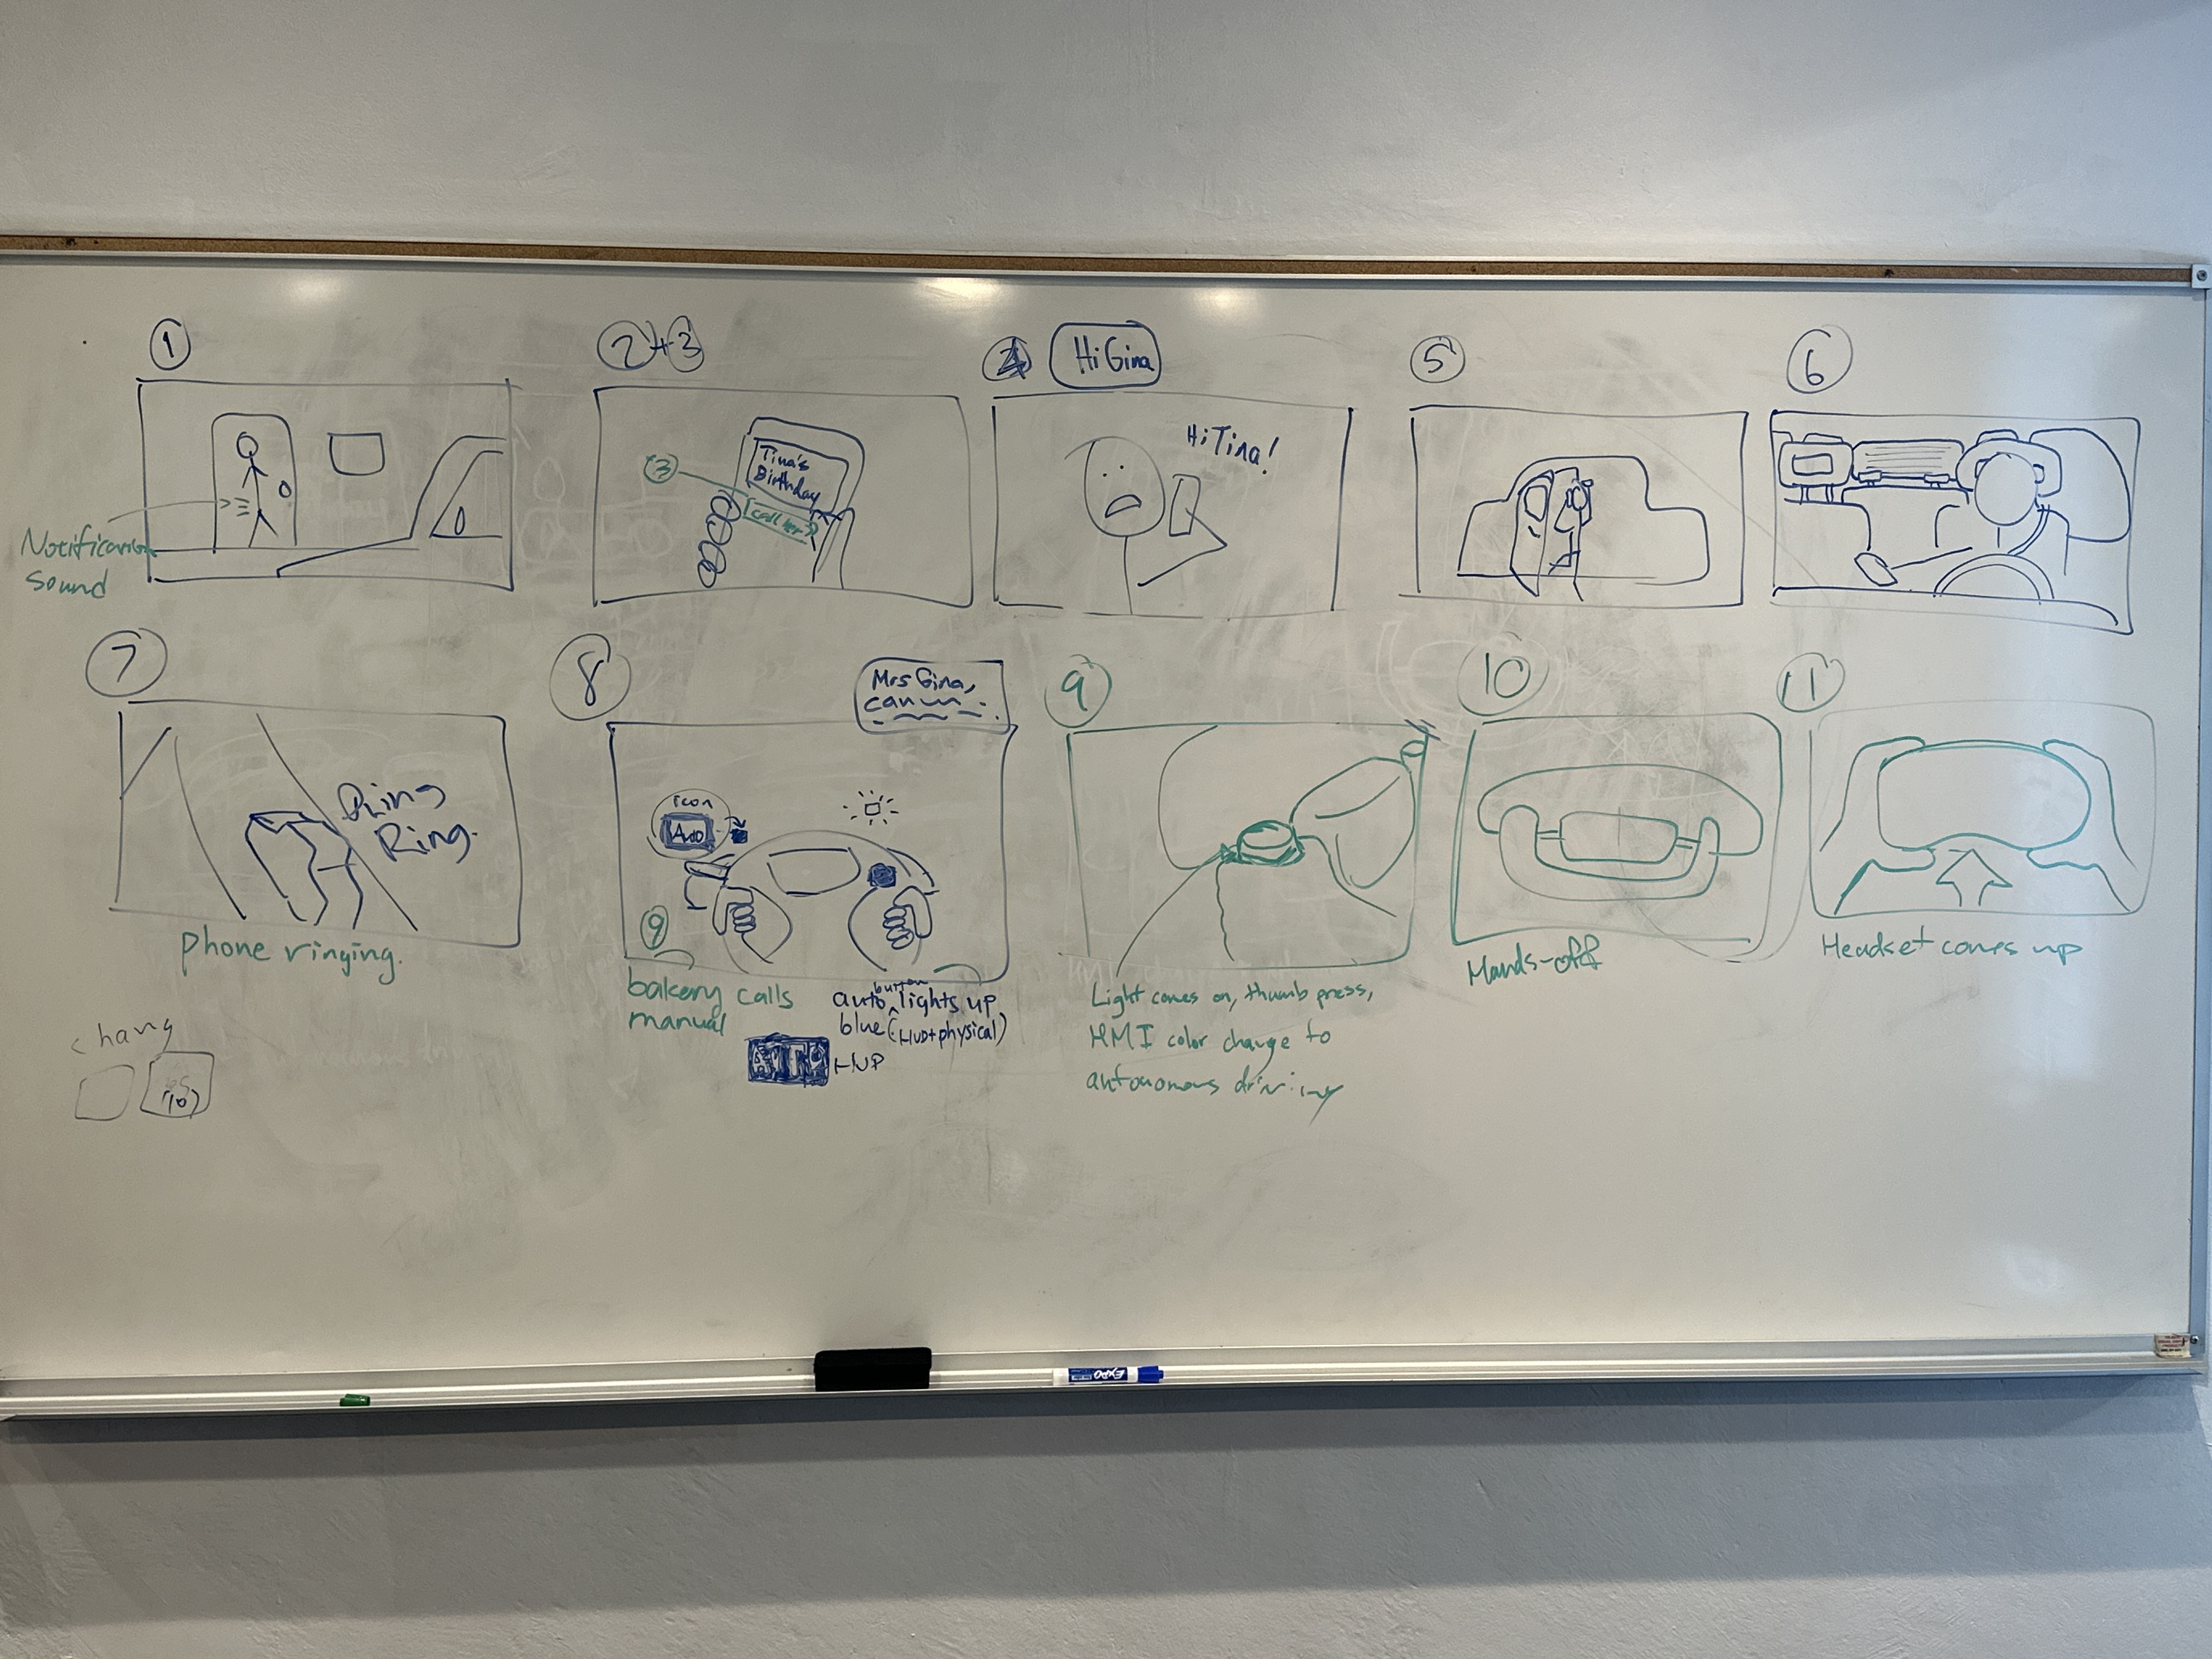 1
2+3
4
Hi Gina
5
6
Notification
sound
3
Tina's
Birthday
call her?
Hi Tina!
7
Ring
Ring.
Phone ringing.
8
Mrs Gina,
can
icon
Auto
9
bakery calls
manual
button
auto lights up
blue (HUD+physical)
AUTO
HUD
9
Light comes on, thumb press,
HMI color change to
autonomous driving
10
Hands-off
11
Headset comes up
EXPO